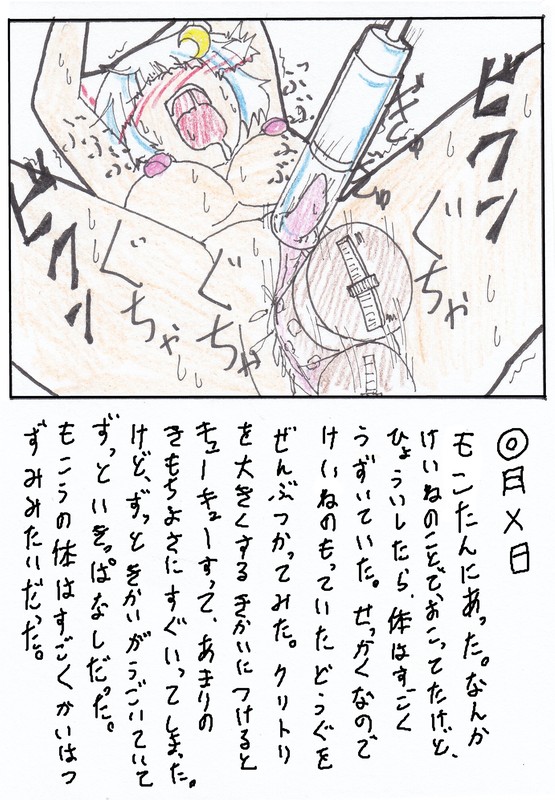 ◎月×日
もこたんにあった。なんか
けいねのことで、おこってたけど、
ひょういしたら、体はすごく
うずいていた。せっかくなので
けいねのもっていたどうぐを
ぜんぶつかってみた。クリトリ
を大きくするきかいにつけると
キューキューすって、あまりの
きもちよさにすぐいってしまった。
けど、ずっときかいがうごいていて
ずっといきっぱなしだった。
もこうの体はすごくかいはつ
ずみみたいだった。
ビクン
ビクン
ぐちゃ
ぐちゃ
ぐちゃ
ぶぶぶ
ぶぶぶ